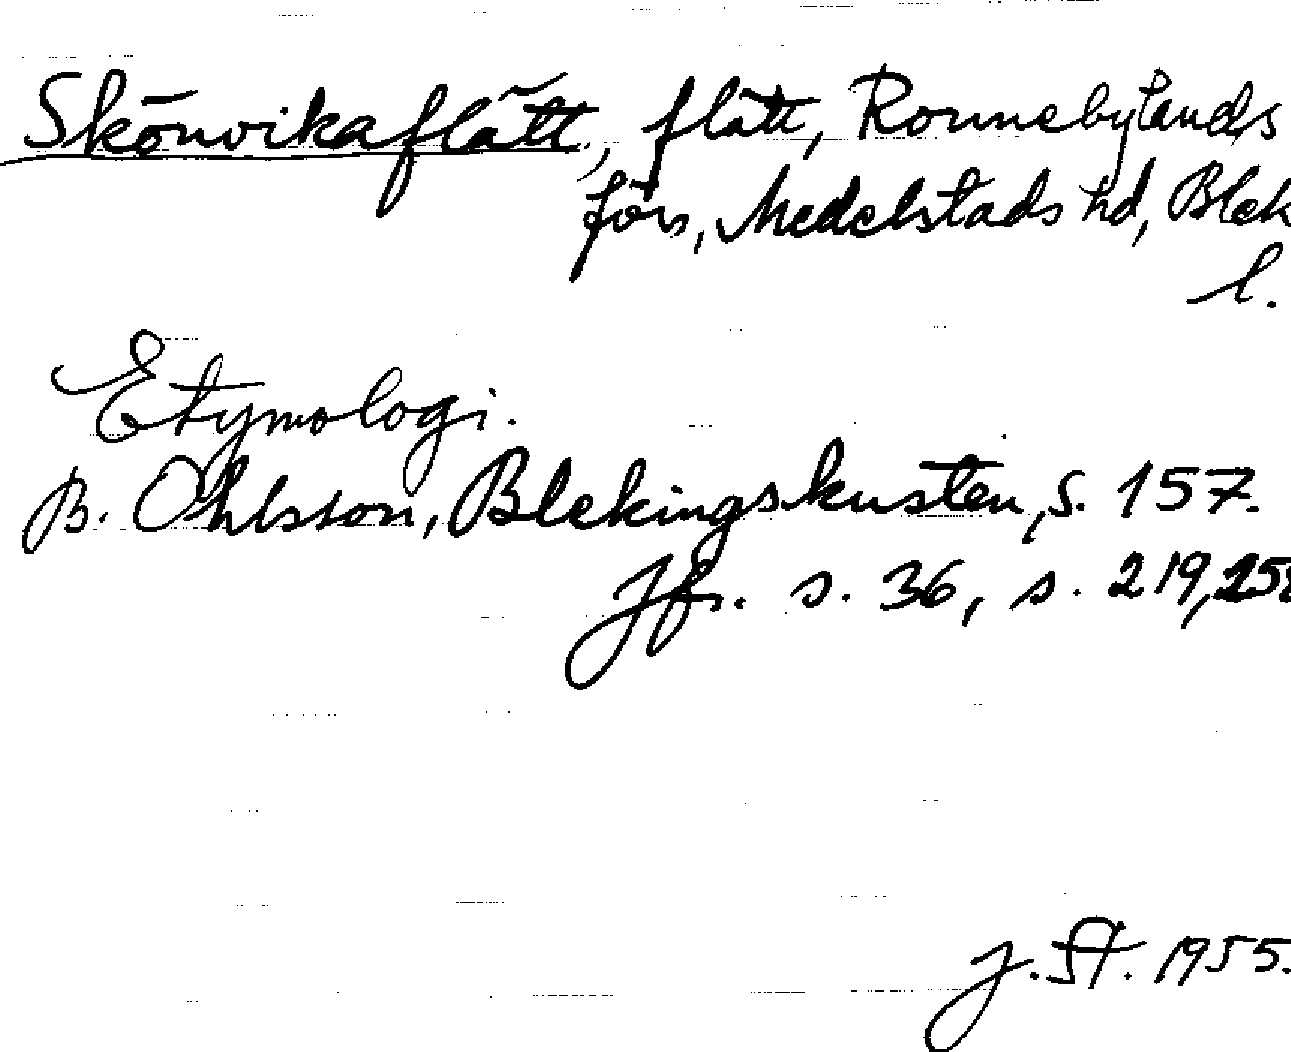 Skönvikaflätt, flätt, Ronnebylands
förs, Medelstads hd, Blek
l.
Etymologi.
B. Ohlsson, Blekingskusten, s. 157.
Jfr. s. 36, s. 219,
J. St. 1955.